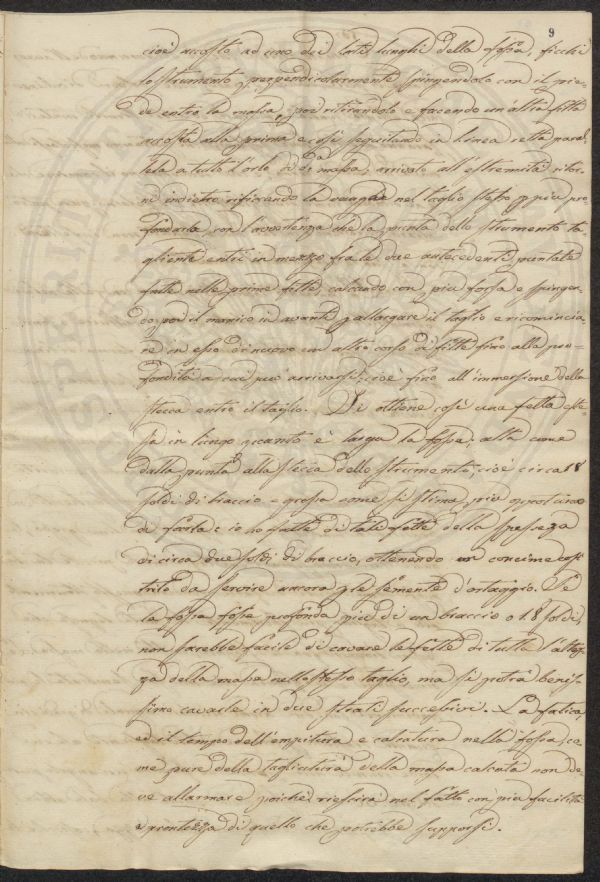 9
cioè accosto ad uno dei lati lunghi della fossa, ficchi
lo strumento perpendicolarmente spingendolo con il pie-
de entro la massa, poi ritirandolo e facendo un'altra fitta
accosto alla prima e così seguitando in linea retta paral-
lela a tutto l'orlo di da massa, arrivato all'estremità ritor-
ni indietro rificcando la vanga nel taglio stesso p più pro-
fondarla, con l'avvertenza che la punta dello strumento ta-
gliente entri in mezzo fra le due antecedenti puntate
fatte nelle prime fitte, calcando con più forza e spingen-
do poi il manico in avanti p allargare il taglio e ricomincia-
re in esso di nuovo un altro corso di fitte fino alla pro-
fondità a cui può arrivarsi, cioè fino all'immersione della
stecca entro il taglio. Si ottiene così una fetta este-
sa in lungo quanto è larga la fossa, alta come
dalla punta alla stecca dello strumento, cioè circa 18
soldi di braccio e grossa come si stima più opportuno
di farla: io ho fatte di tali fette della spessezza
di circa due soldi di braccio, ottenendo un concime così
trito da servire ancora p le semente d'ortaggio. Se
la fossa fosse profonda più di un braccio o 18 soldi,
non sarebbe facile di cavare le fette di tutta l'altez-
za della massa nello stesso taglio, ma si potrà benis-
simo cavarle in due strati successivi. La fatica,
ed il tempo dell'empitura e calcatura nella fossa, co-
me pure della tagliatura della massa calcata non de-
ve allarmare poichè riescirà nel fatto con più facilità
e prontezza di quello che potrebbe supporsi.